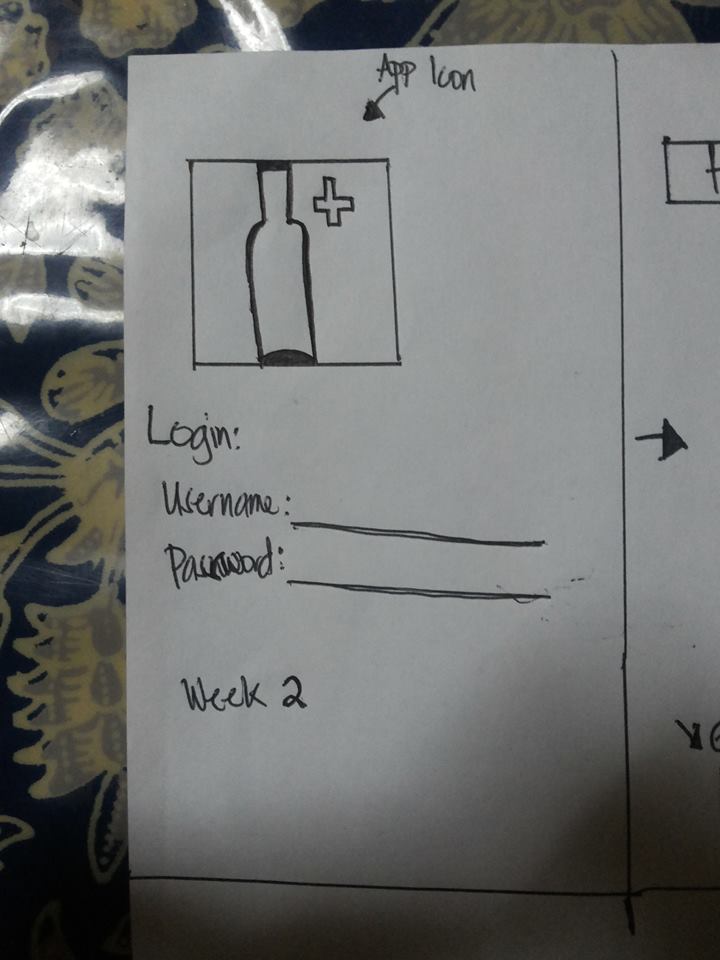 App Icon
Login:
Username:
Password:
Week 2